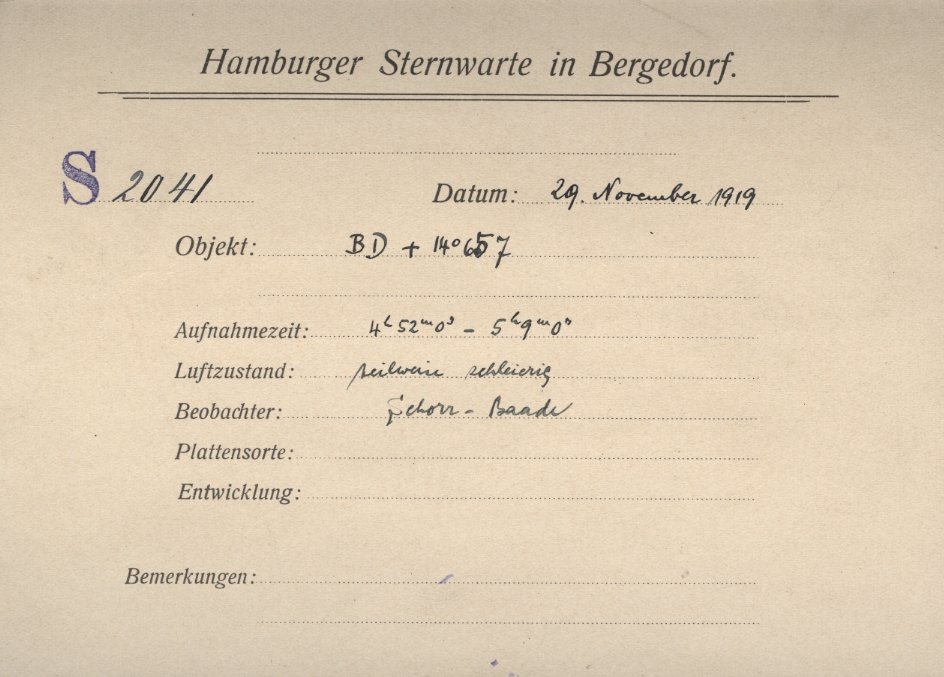 Hamburger Sternwarte in Bergedorf.
S 2041 Datum: 29. November 1919
Objekt: BD + 14° 657
Aufnahmezeit: 4ʰ52ᵐ0ˢ - 5ʰ9ᵐ0ˢ
Luftzustand: teilweise schleierig
Beobachter: Schorr - Baade
Plattensorte:
Entwicklung:
Bemerkungen: